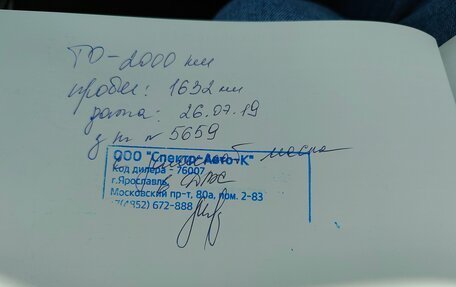 ТО-2000 км
пробег: 1632 км
дата: 26.07.19
з/н № 5659
масла
ООО "Спектр-Авто-К"
Код дилера - 76007
г.Ярославль
Московский пр-т, 80а, пом. 2-83
(4852) 672-888